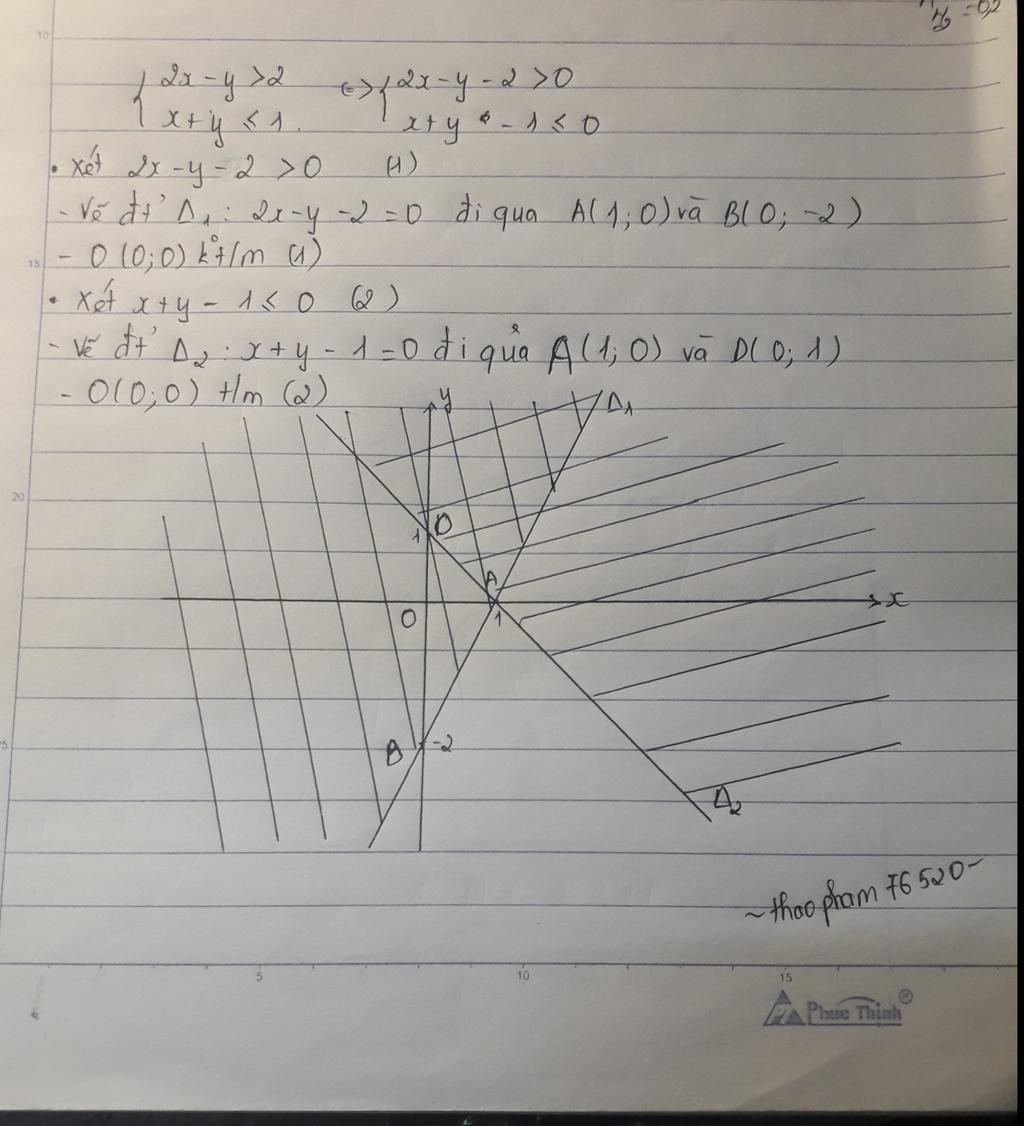 = 0,2
10
{ 2x - y > 2 <=> { 2x - y - 2 > 0
x + y ≤ 1. x + y - 1 ≤ 0
• Xét 2x - y - 2 > 0 (1)
- Vẽ đt' Δ1: 2x - y - 2 = 0 đi qua A(1; 0) và B(0; -2)
15 - O(0;0) k° t/m (1)
• Xét x + y - 1 ≤ 0 (2)
- Vẽ đt' Δ2: x + y - 1 = 0 đi qủa A(1; 0) và D(0; 1)
- O(0;0) t/m (2)
y Δ1
20
1 D
A
O 1 x
B -2
Δ2
~thaopham 76520~
5 10 15
Phúc Thịnh®